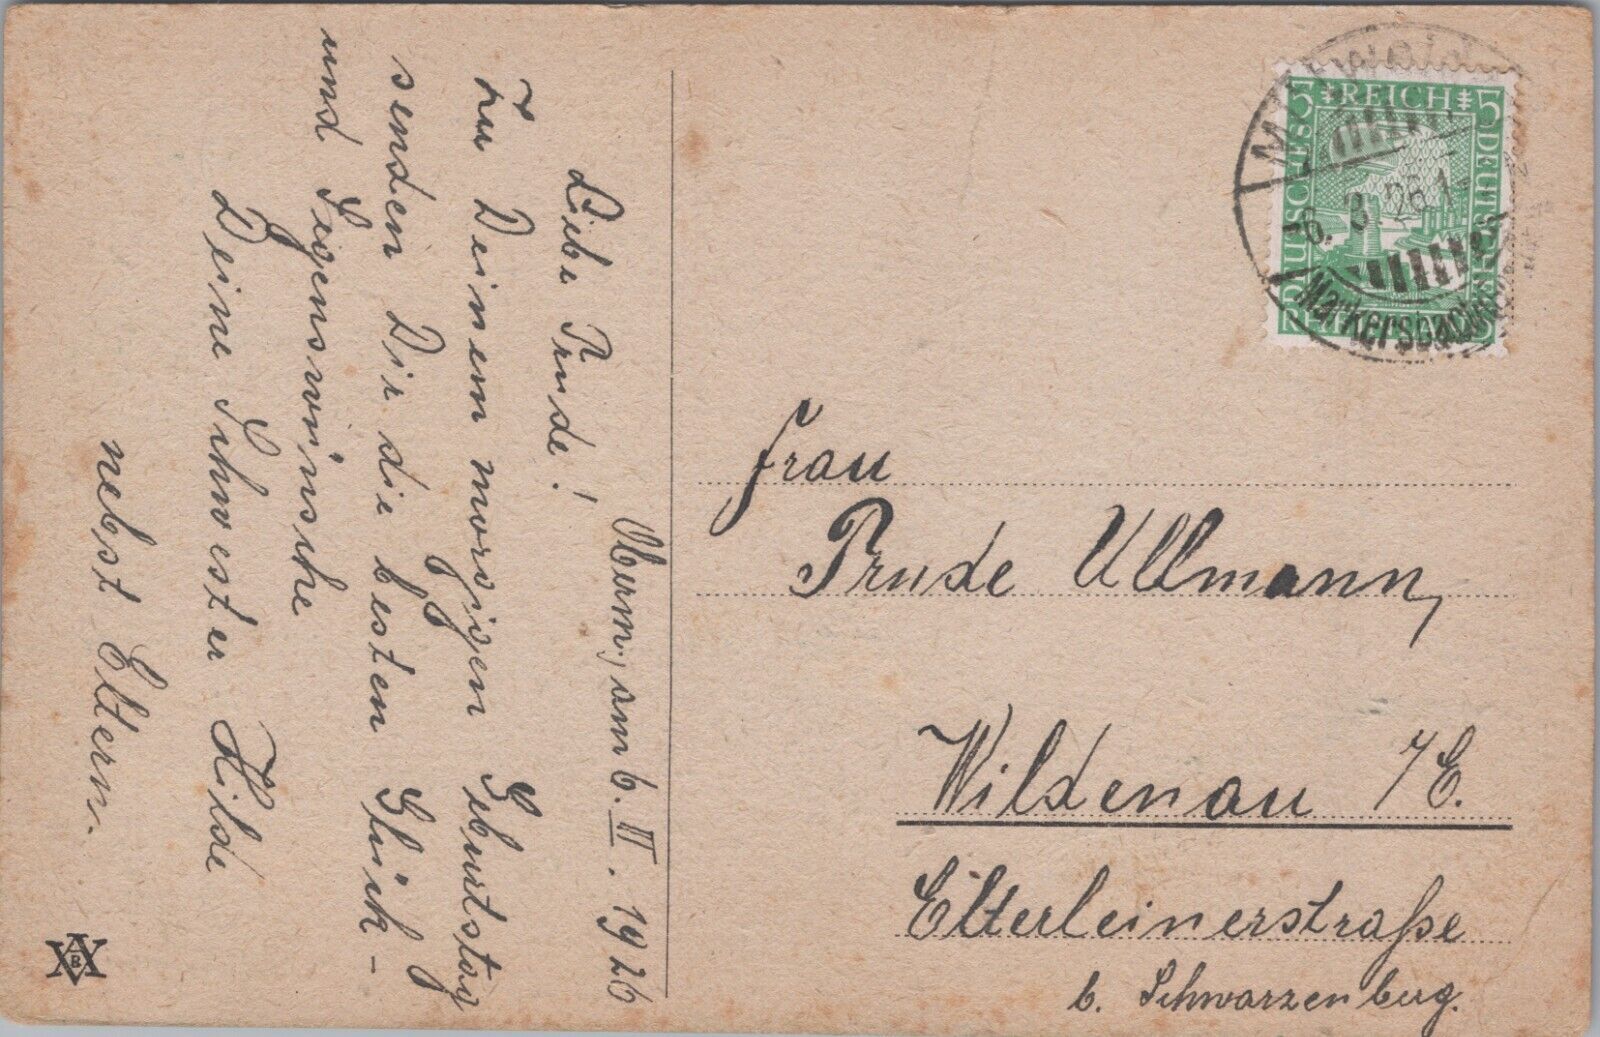 Oberm., am 6. III. 1926
Liebe Trude!
Zu Deinem morgigen Geburtstag
senden Dir die besten Glück-
und Segenswünsche
Deine Schwester Hilde
nebst Eltern.
DEUTSCHES REICH
5 5
-6. 3. 26. 1-
Markersbach
Frau
Trude Ullmann,
Wildenau i/E.
Elterleinerstraße
b. Schwarzenberg.